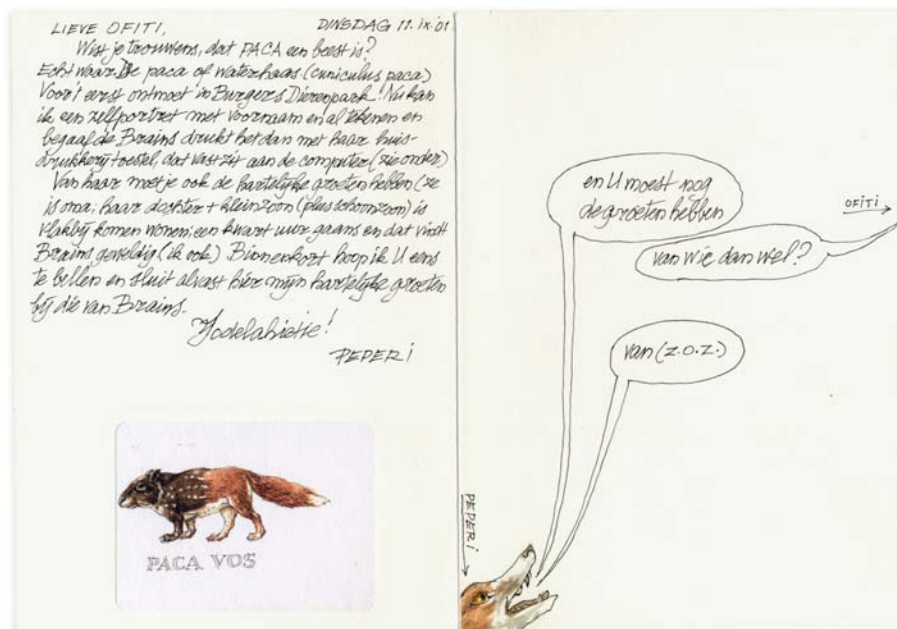 LIEVE OFITI, DINSDAG 11.IX.01
Wist je trouwens, dat PACA een beest is?
Echt waar. De paca of waterhaas (cuniculus paca)
Voor 't eerst ontmoet in Burgers Dierenpark! Nu kan
ik een zelfportret met voornaam en al tekenen en
begaafde Brains drukt het dan met haar huis-
drukkerij toestel, dat vast zit aan de computer (zie onder)
Van haar moet je ook de hartelijke groeten hebben (ze
is oma; haar dochter + kleinzoon (plus schoonzoon) is
vlakbij komen wonen; een kwart uur gaans en dat vindt
Brains geweldig (ik ook). Binnenkort hoop ik U eens
te bellen en sluit alvast hier mijn hartelijke groeten
bij die van Brains.
Jodelahietie!
PEPERI
PACA VOS
en U moest nog
de groeten hebben
OFITI
van wie dan wel?
van (z.o.z.)
PEPERI